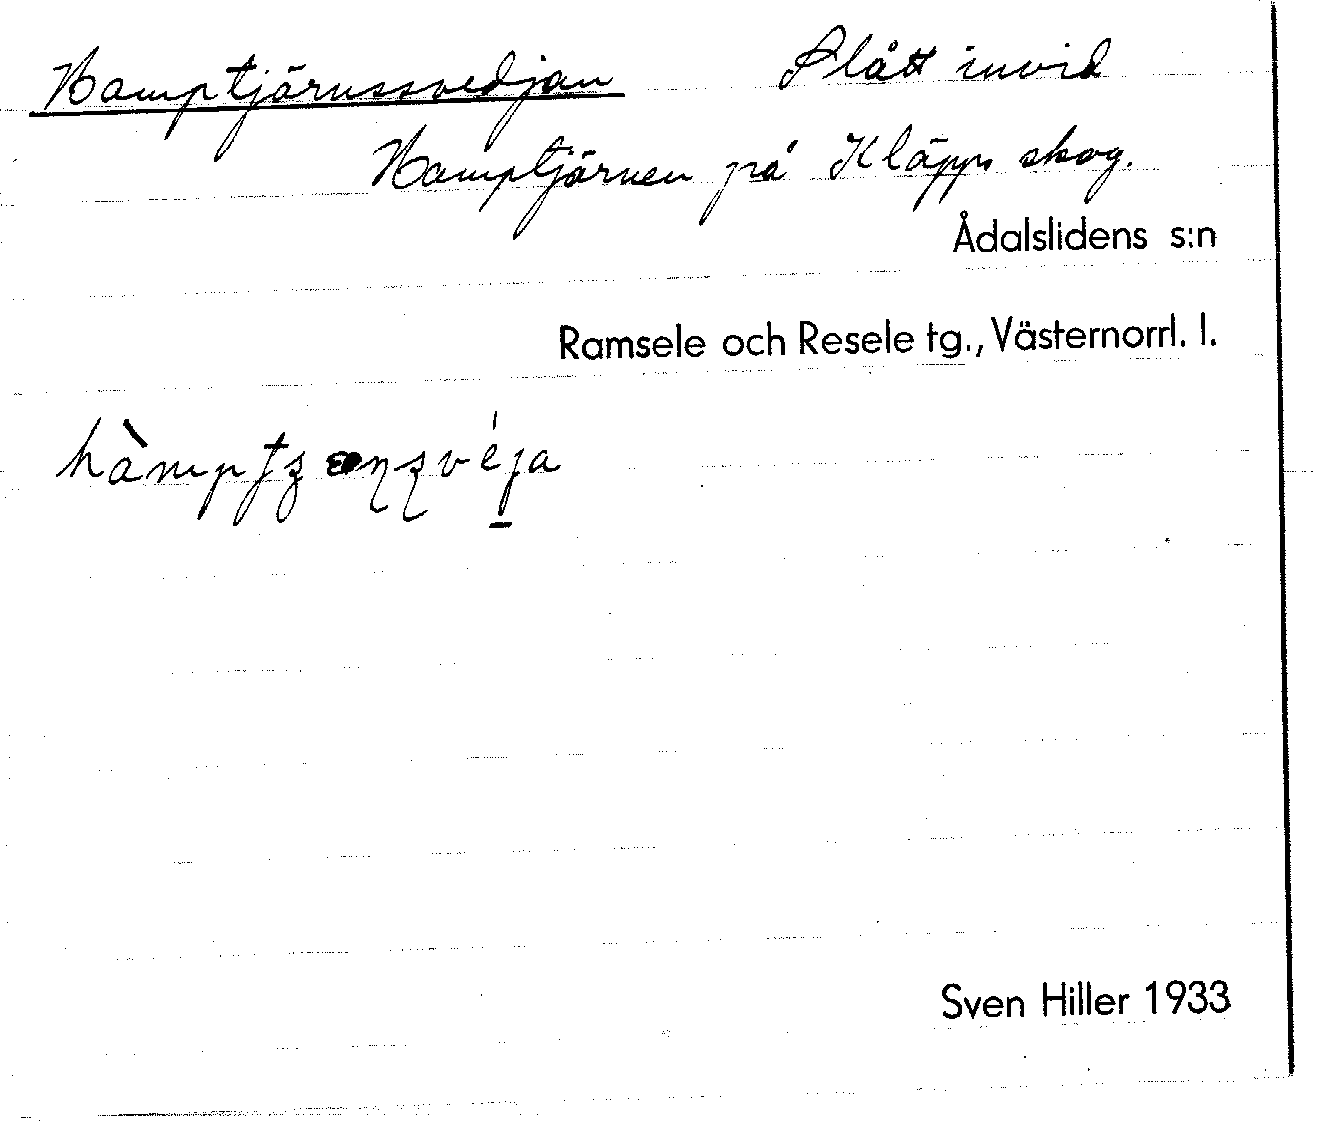 Hamptjärnssvedjan Slått invid
Hamptjärnen på Kläpps skog.
Ådalslidens s:n
Ramsele och Resele tg., Västernorrl. l.
Sven Hiller 1933